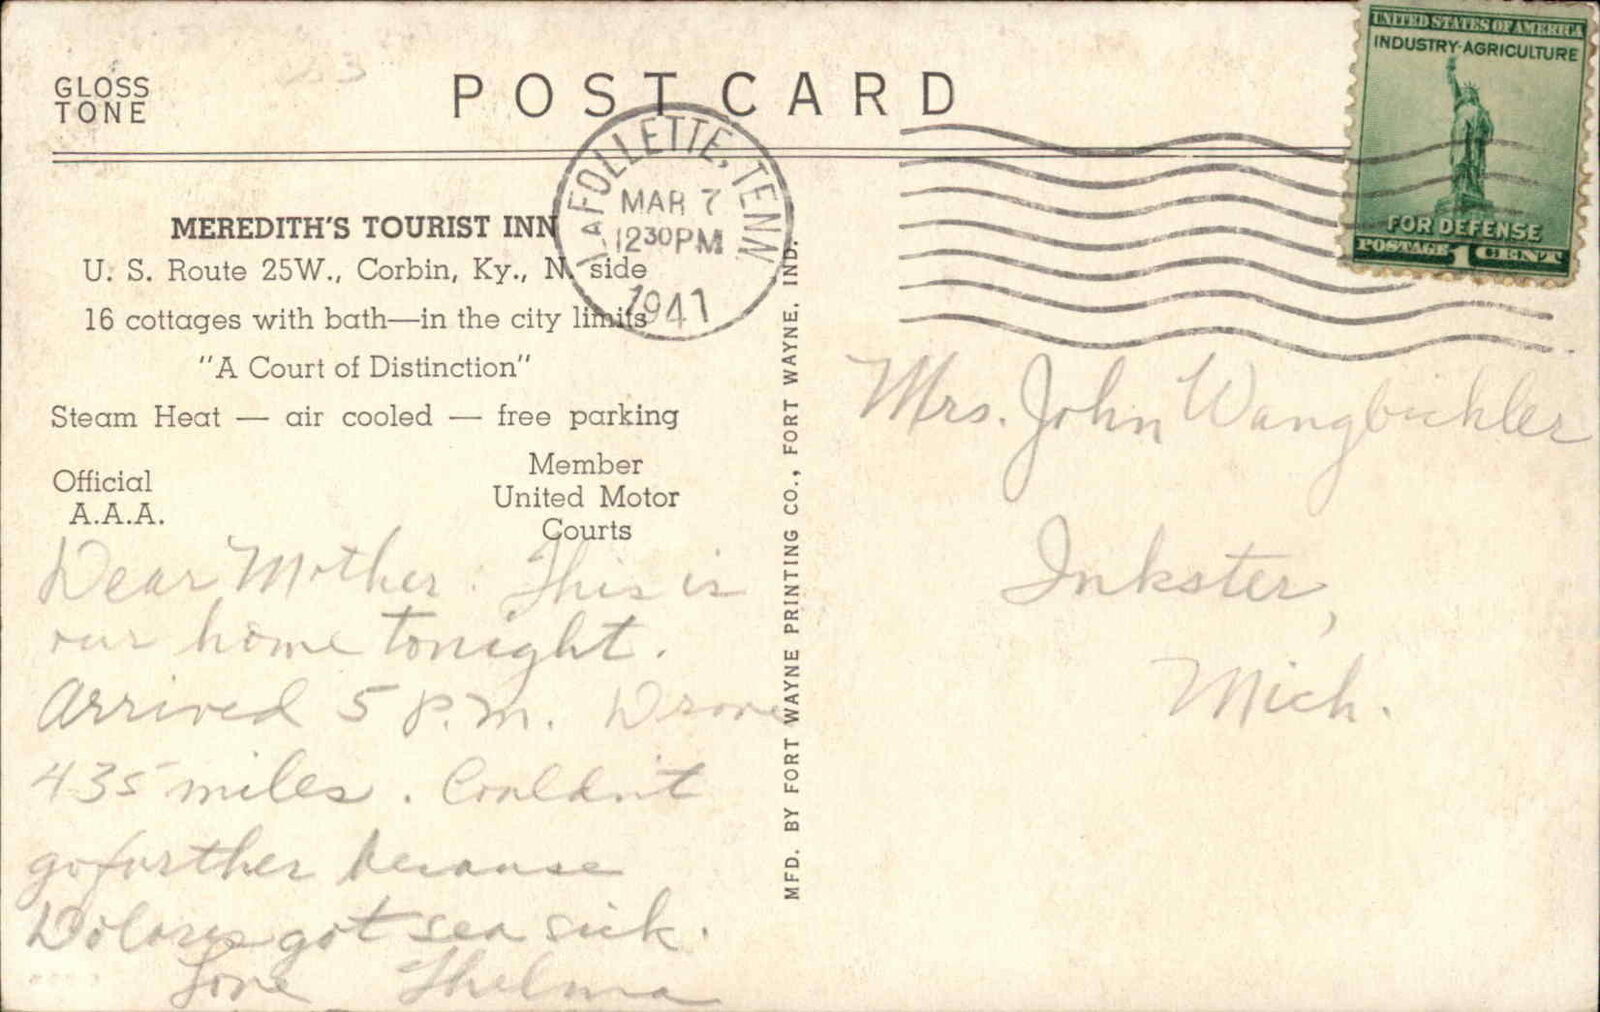 GLOSS
TONE
POST CARD
UNITED STATES OF AMERICA
INDUSTRY·AGRICULTURE
FOR DEFENSE
POSTAGE 1 CENT
LAFOLLETTE, TENN.
MAR 7
12 30 PM
1941
MEREDITH'S TOURIST INN
U. S. Route 25W., Corbin, Ky., N. side
16 cottages with bath—in the city limits
"A Court of Distinction"
Steam Heat — air cooled — free parking
Official
A.A.A.
Member
United Motor
Courts
Dear Mother. This is
our home tonight.
Arrived 5 P.M. Drove
435 miles. Couldn't
go further because
Dolores got sea sick.
Love Thelma
MFD. BY FORT WAYNE PRINTING CO., FORT WAYNE, IND.
Mrs. John Wangbichler
Inkster,
Mich.